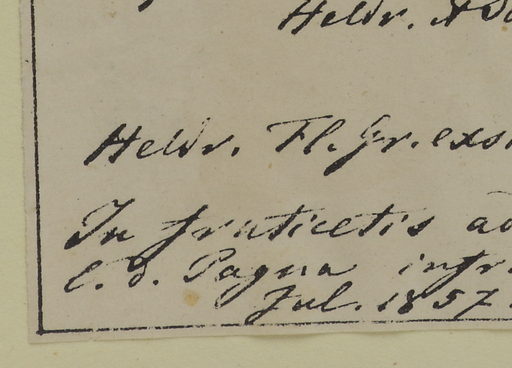 Heldr.
Heldr. Fl. gr. exs
In fruticetis ad
C. d. Pagna infr
Jul. 1857.